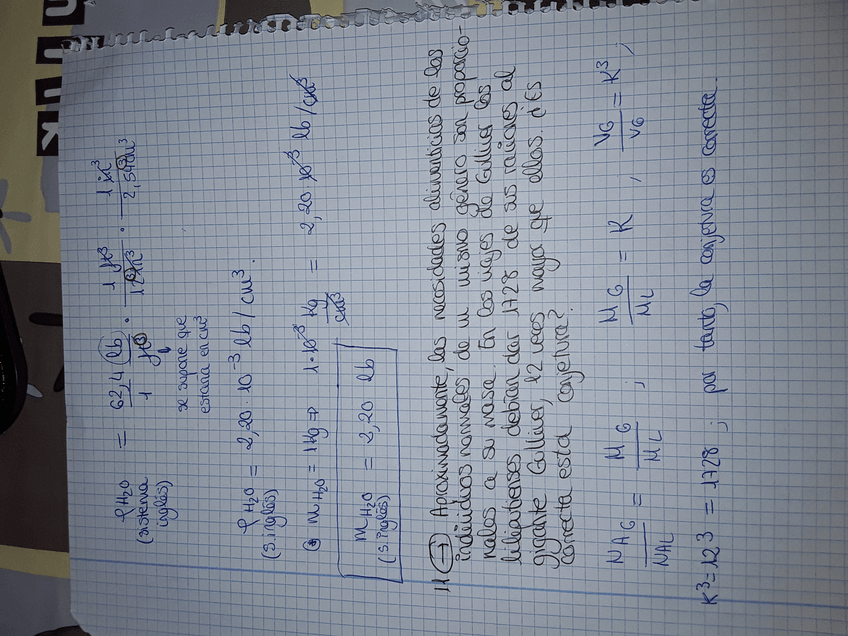 ρH₂O = 62,4 lb / 1 ft³ · 1 ft³ / 12³ in³ · 1 in³ / 2,54³ cm³
(sistema inglés)
se supone que
estaría en cm³
ρH₂O = 2,20 · 10⁻³ lb / cm³.
(S. inglés)
mH₂O = 1 Kg ⇒ 1 · 10⁻³ Kg / cm³ = 2,20 · 10⁻³ lb / cm³
mH₂O = 2,20 lb
(S. inglés)
11 → Aproximadamente, las necesidades alimenticias de los
individuos normales de un mismo género son proporcio-
nales a su masa. En los viajes de Gulliver los
liliputienses debían dar 1728 de sus raciones al
gigante Gulliver, 12 veces mayor que ellos. ¿Es
correcta esta conjetura?
NAG / NAL = MG / ML , MG / ML = K , VG / VG = K³ ,
K³ = 12³ = 1728 ; por tanto, la conjetura es correcta.